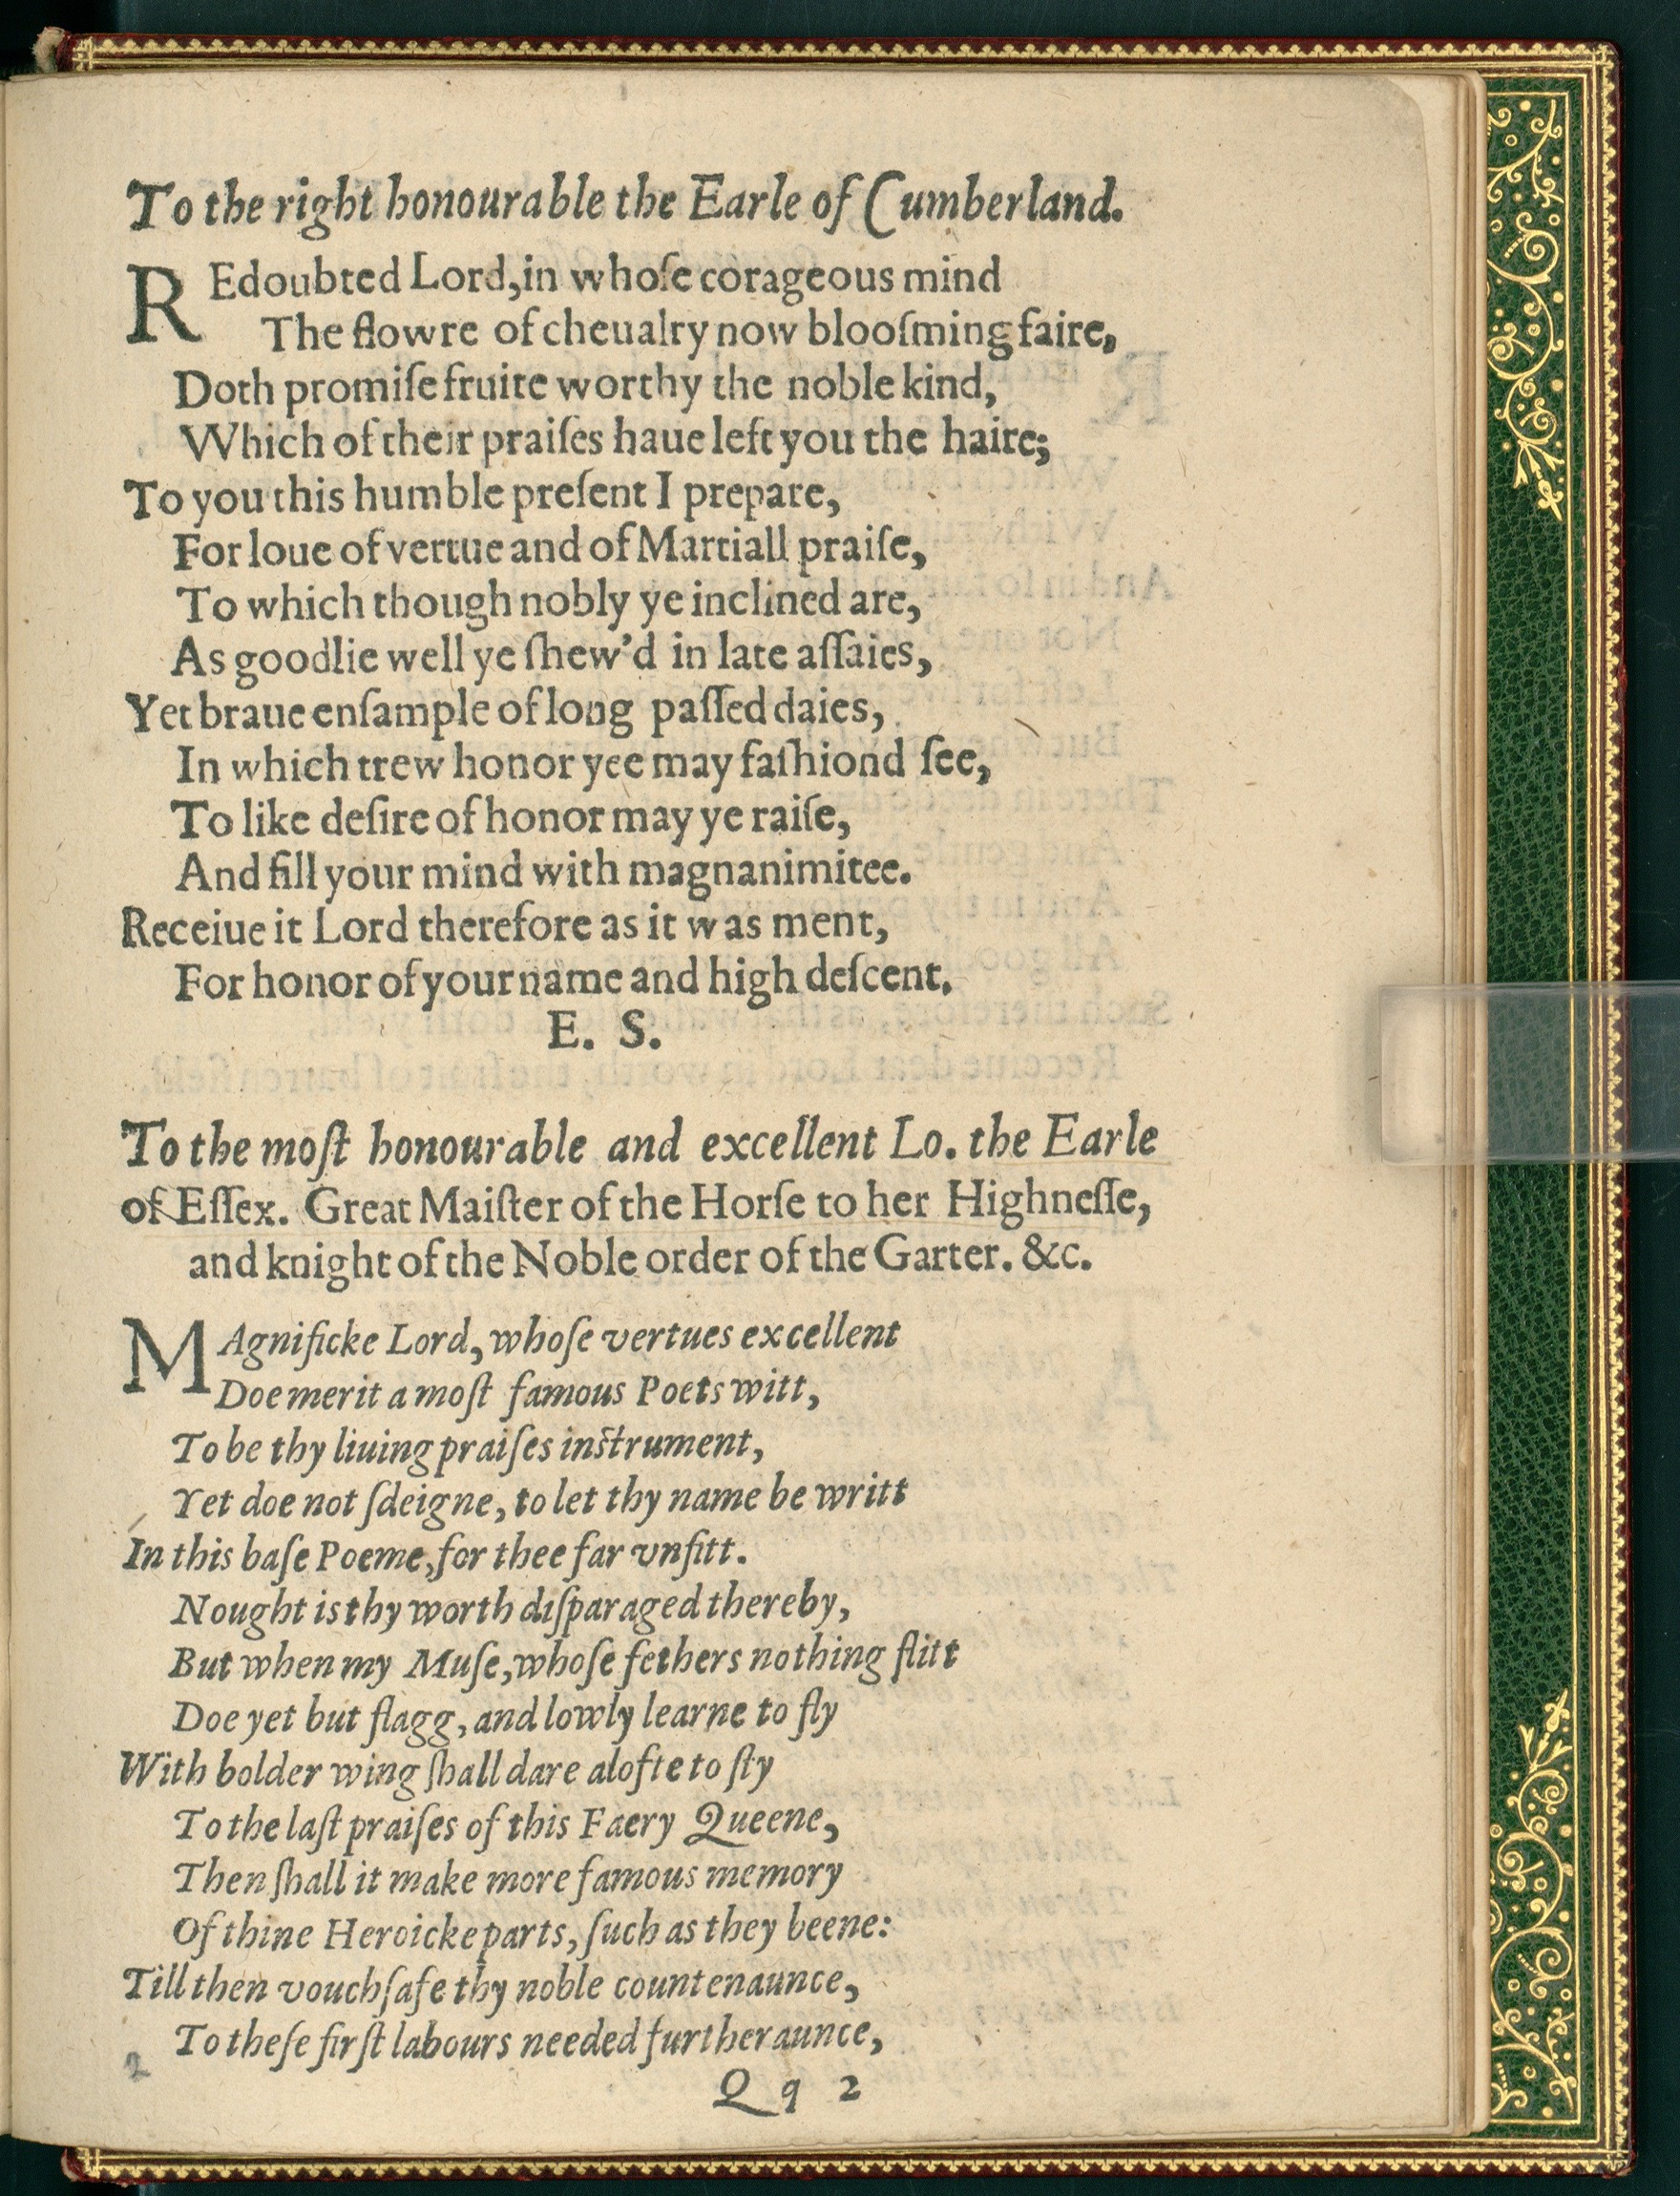 To the right honourable the Earle of Cumberland.
REdoubted Lord, in whoſe corageous mind
The flowre of cheualry now blooſming faire,
Doth promiſe fruite worthy the noble kind,
Which of their praiſes haue left you the haire;
To you this humble preſent I prepare,
For loue of vertue and of Martiall praiſe,
To which though nobly ye inclined are,
As goodlie well ye ſhew'd in late aſſaies,
Yet braue enſample of long paſſed daies,
In which trew honor yee may faſhiond ſee,
To like deſire of honor may ye raiſe,
And fill your mind with magnanimitee.
Receiue it Lord therefore as it was ment,
For honor of your name and high deſcent.
E. S.
To the moſt honourable and excellent Lo. the Earle
of Eſſex. Great Maiſter of the Horſe to her Highneſſe,
and knight of the Noble order of the Garter. &c.
MAgnificke Lord, whoſe vertues excellent
Doe merit a moſt famous Poets witt,
To be thy liuing praiſes inſtrument,
Yet doe not ſdeigne, to let thy name be writt
In this baſe Poeme, for thee far vnfitt.
Nought is thy worth diſparaged thereby,
But when my Muſe, whoſe fethers nothing flitt
Doe yet but flagg, and lowly learne to fly
With bolder wing ſhall dare alofte to ſty
To the laſt praiſes of this Faery Queene,
Then ſhall it make more famous memory
Of thine Heroicke parts, ſuch as they beene:
Till then vouchſafe thy noble countenaunce,
To theſe firſt labours needed furtheraunce,
2
Q q 2